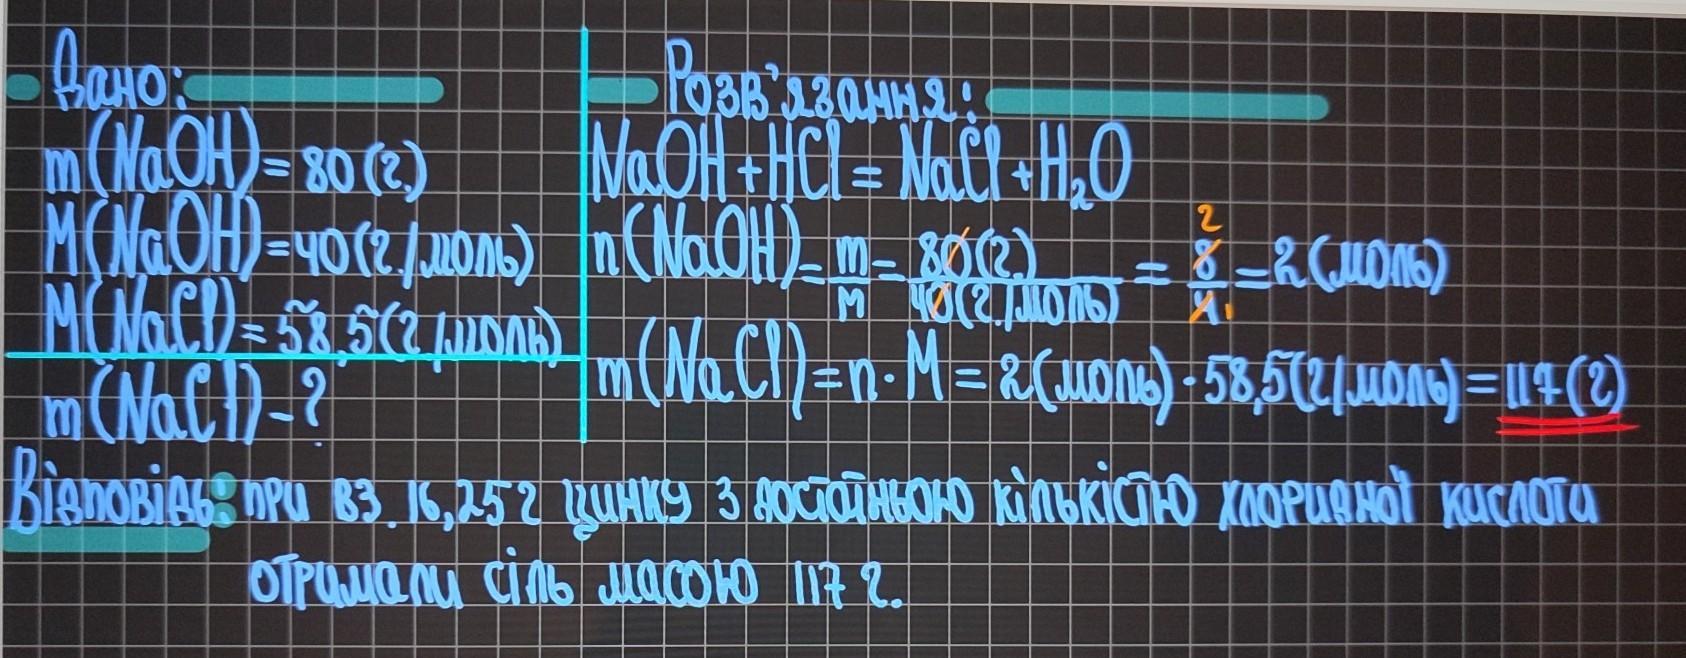 Дано:
m(NaOH)=80(г.)
M(NaOH)=40(г./моль)
M(NaCl)=58,5(г/моль)
m(NaCl)-?
Розв'язання:
NaOH+HCl=NaCl+H₂O
n(NaOH)=m/M=80(г.)/40(г./моль)=8/4=2(моль)
2
1
m(NaCl)=n·M=2(моль)·58,5(г/моль)=117(г)
Відповідь: при вз. 16,25г цинку з достатньою кількістю хлоридної кислоти
отримали сіль масою 117 г.